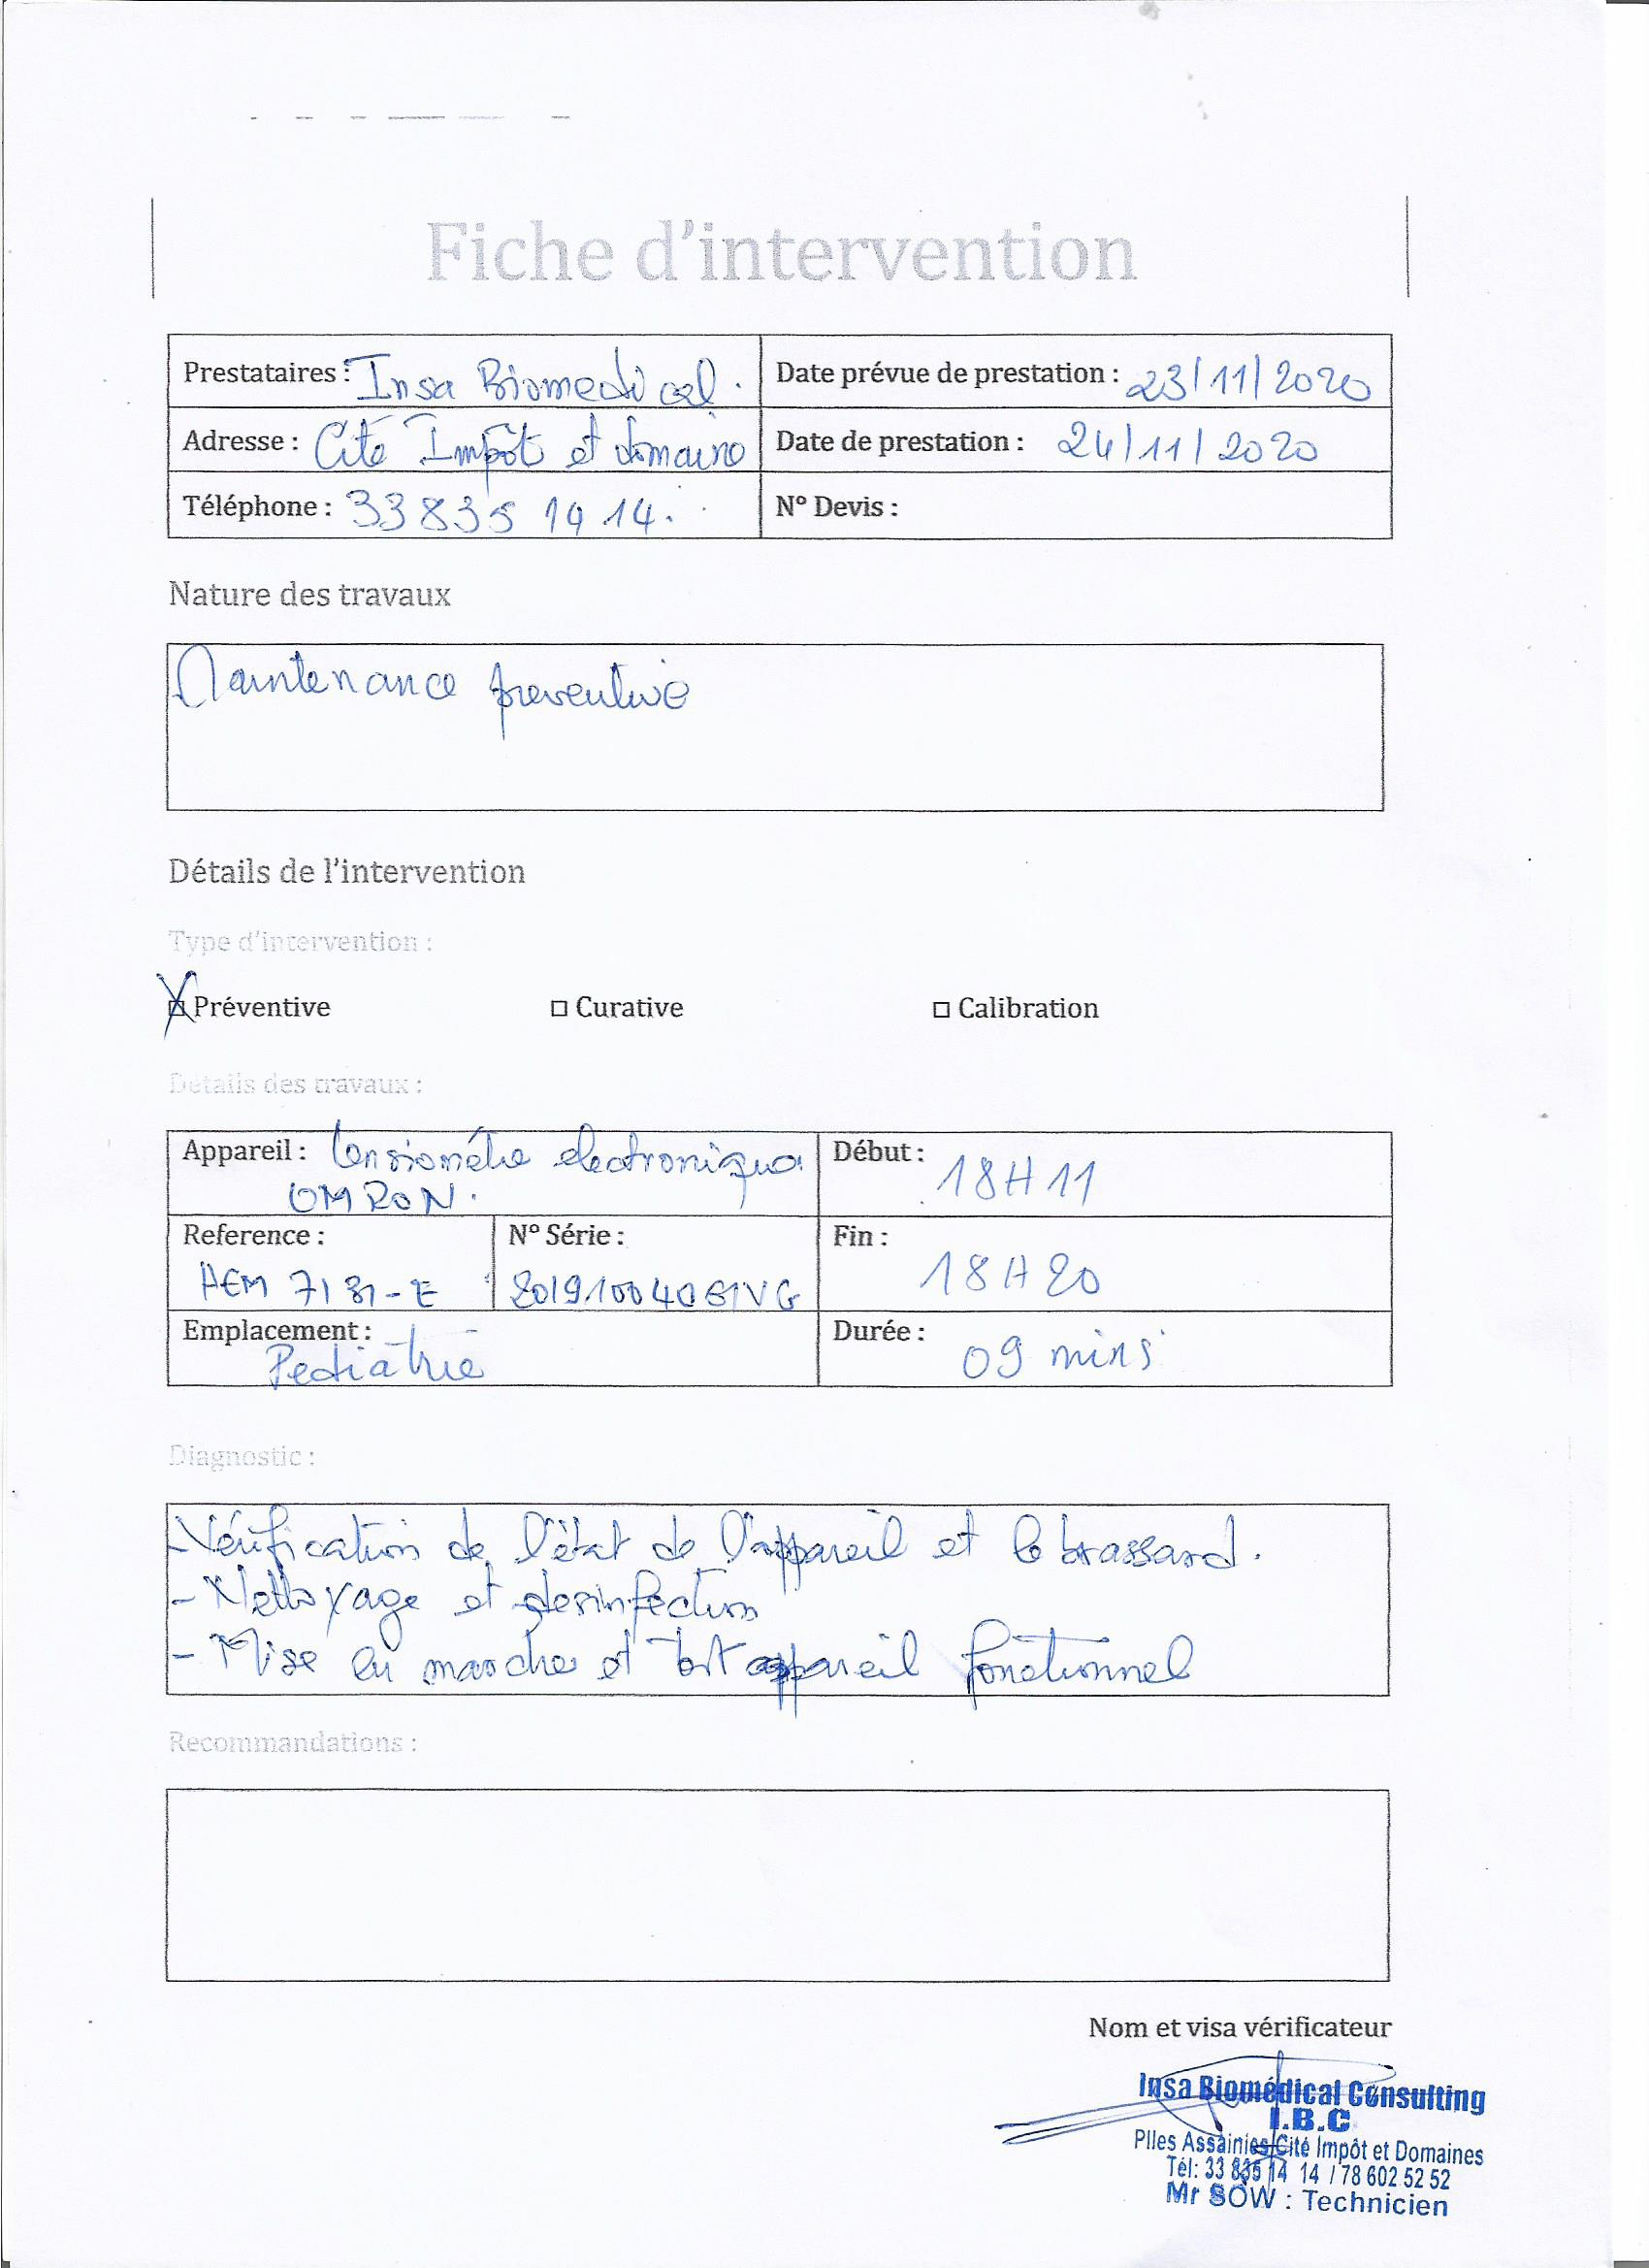 Fiche d'intervention
Prestataires : Insa Biomedical.
Date prévue de prestation : 23/11/2020
Adresse : Cité Impôt et domaine
Date de prestation : 24/11/2020
Téléphone : 33 835 14 14.
N° Devis :
Nature des travaux
Maintenance preventive
Détails de l'intervention
Type d'intervention :
Préventive
Curative
Calibration
Détails des travaux :
Appareil : tensiométre electronique
OMRON.
Début : 18H11
Reference :
HEM 7131-E
N° Série :
Fin :
18H20
Emplacement :
Pediatrie
Durée :
09 mins
Diagnostic :
- Vérification de l'état de l'appareil et le brassard.
- Nettoyage et desinfection
- Mise en marche et test appareil fonctionnel
Recommandations :
Nom et visa vérificateur
Insa Biomédical Consulting
I.B.C
Plles Assainies Cité Impôt et Domaines
Tél: 33 835 14 14 / 78 602 52 52
Mr SOW : Technicien